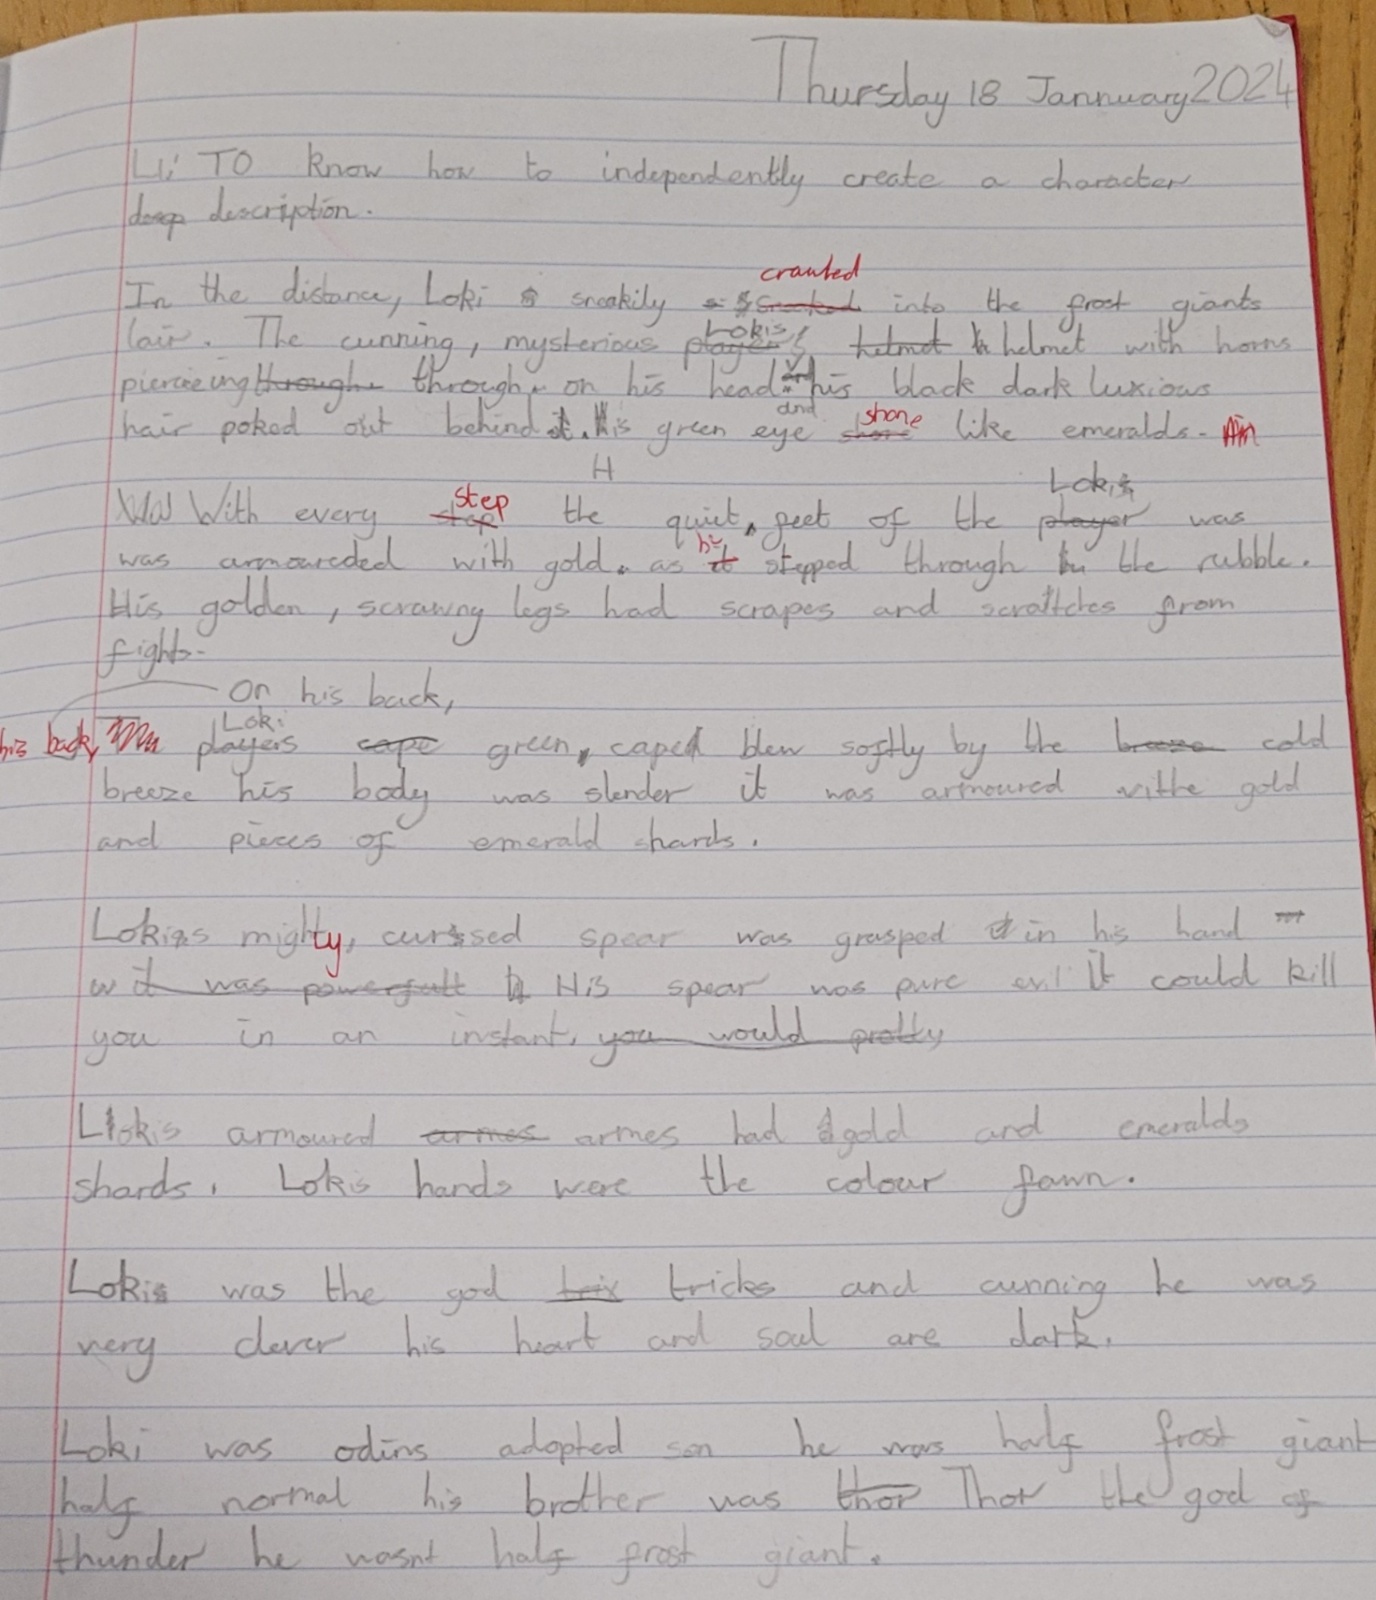 Thursday 18 Jannuary 2024
LI: TO know how to independently create a character
desp description.
crawled
In the distance, Loki s sneakily into the frost giants
Lokis
lair. The cunning, mysterious player's helmet h helmet with horns
pierceing through through on his head his black dark luxious
and
hair poked out behind it. His green eye shone like emeralds.
H
Lokis
step
Wa With every step the quiet, feet of the player was
he
was armoureded with gold. as it stepped through the rubble.
His golden, scrawny legs had scrapes and scrattches from
fights.
On his back,
Loki
his back, players cape green, caped blew softly by the breeze cold
breeze his body was slender it was armoured withe gold
and pieces of emerald shards.
Lokis mighty, curssed spear was grasped in his hand
w it was powerfull His spear was pure evil it could kill
you in an instant, you would pretty
Lokis armoured armes armes had gold and emeralds
shards. Lokis hands were the colour fawn.
Lokis was the god trix tricks and cunning he was
very clever his heart and soul are dark.
Loki was odins adopted son he was half frost giant
half normal his brother was thor Thor the god of
thunder he wasnt half frost giant.